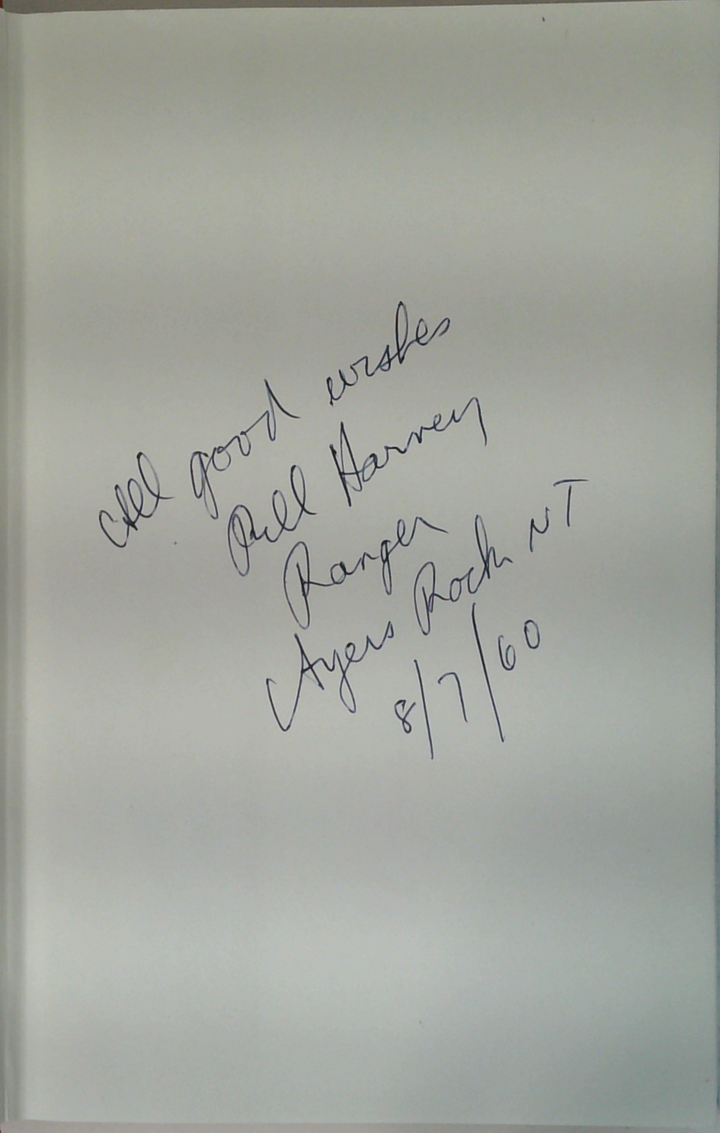 All good wishes
Bill Harney
Ranger
Ayers Rock NT
8/7/60